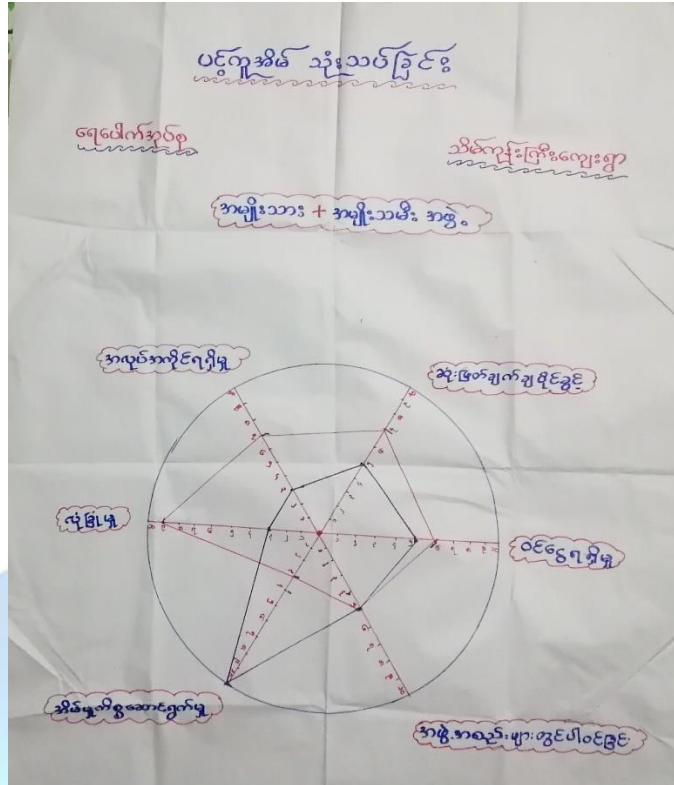 ပင့်ကူအိမ် သုံးသပ်ခြင်း
ရေပေါက်အုပ်စု
သိမ်ကုန်းကြီးကျေးရွာ
အမျိုးသား + အမျိုးသမီး အဖွဲ့
အလုပ်အကိုင်ရရှိမှု
ဆုံးဖြတ်ချက်ချပိုင်ခွင့်
လုံခြုံမှု
ဝင်ငွေရရှိမှု
အိမ်မှုကိစ္စဆောင်ရွက်မှု
အဖွဲ့အစည်းများတွင်ပါဝင်ခြင်း